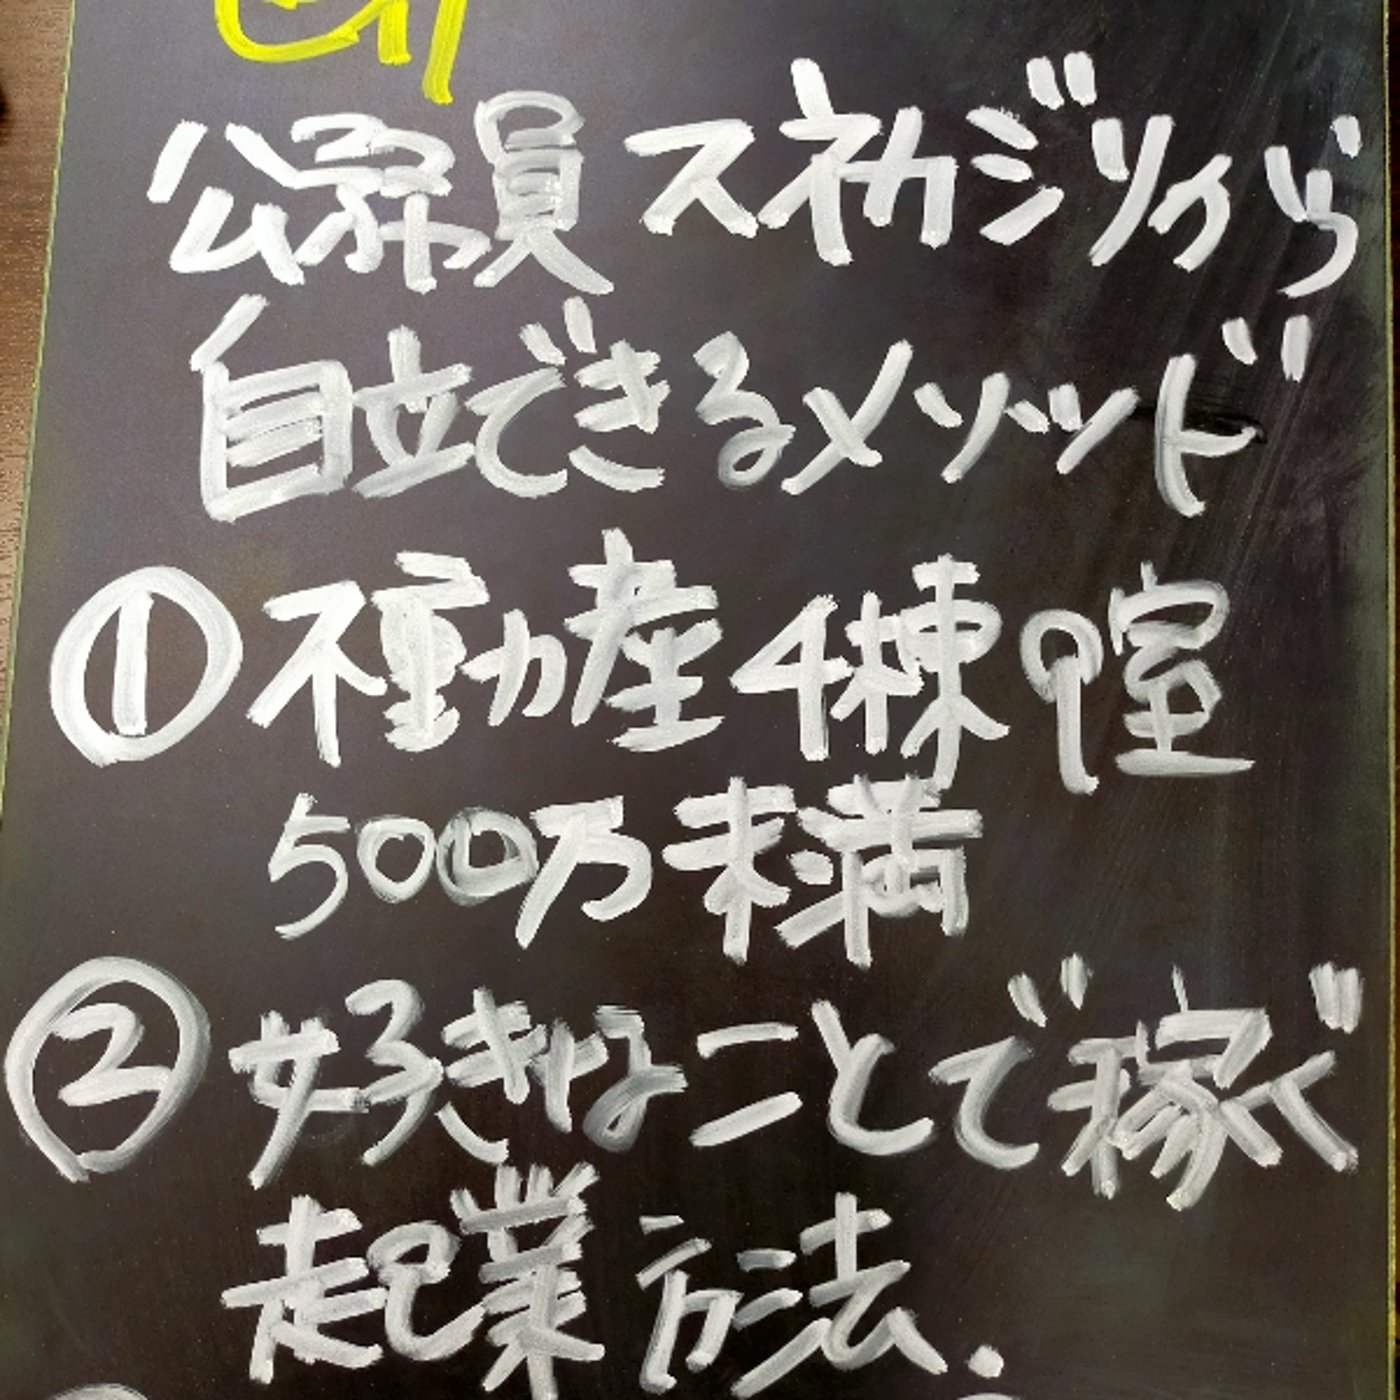 公務員スネカジリから
自立できるメソッド
①不動産4棟9室
500万未満
②好きなことで稼ぐ
起業方法.